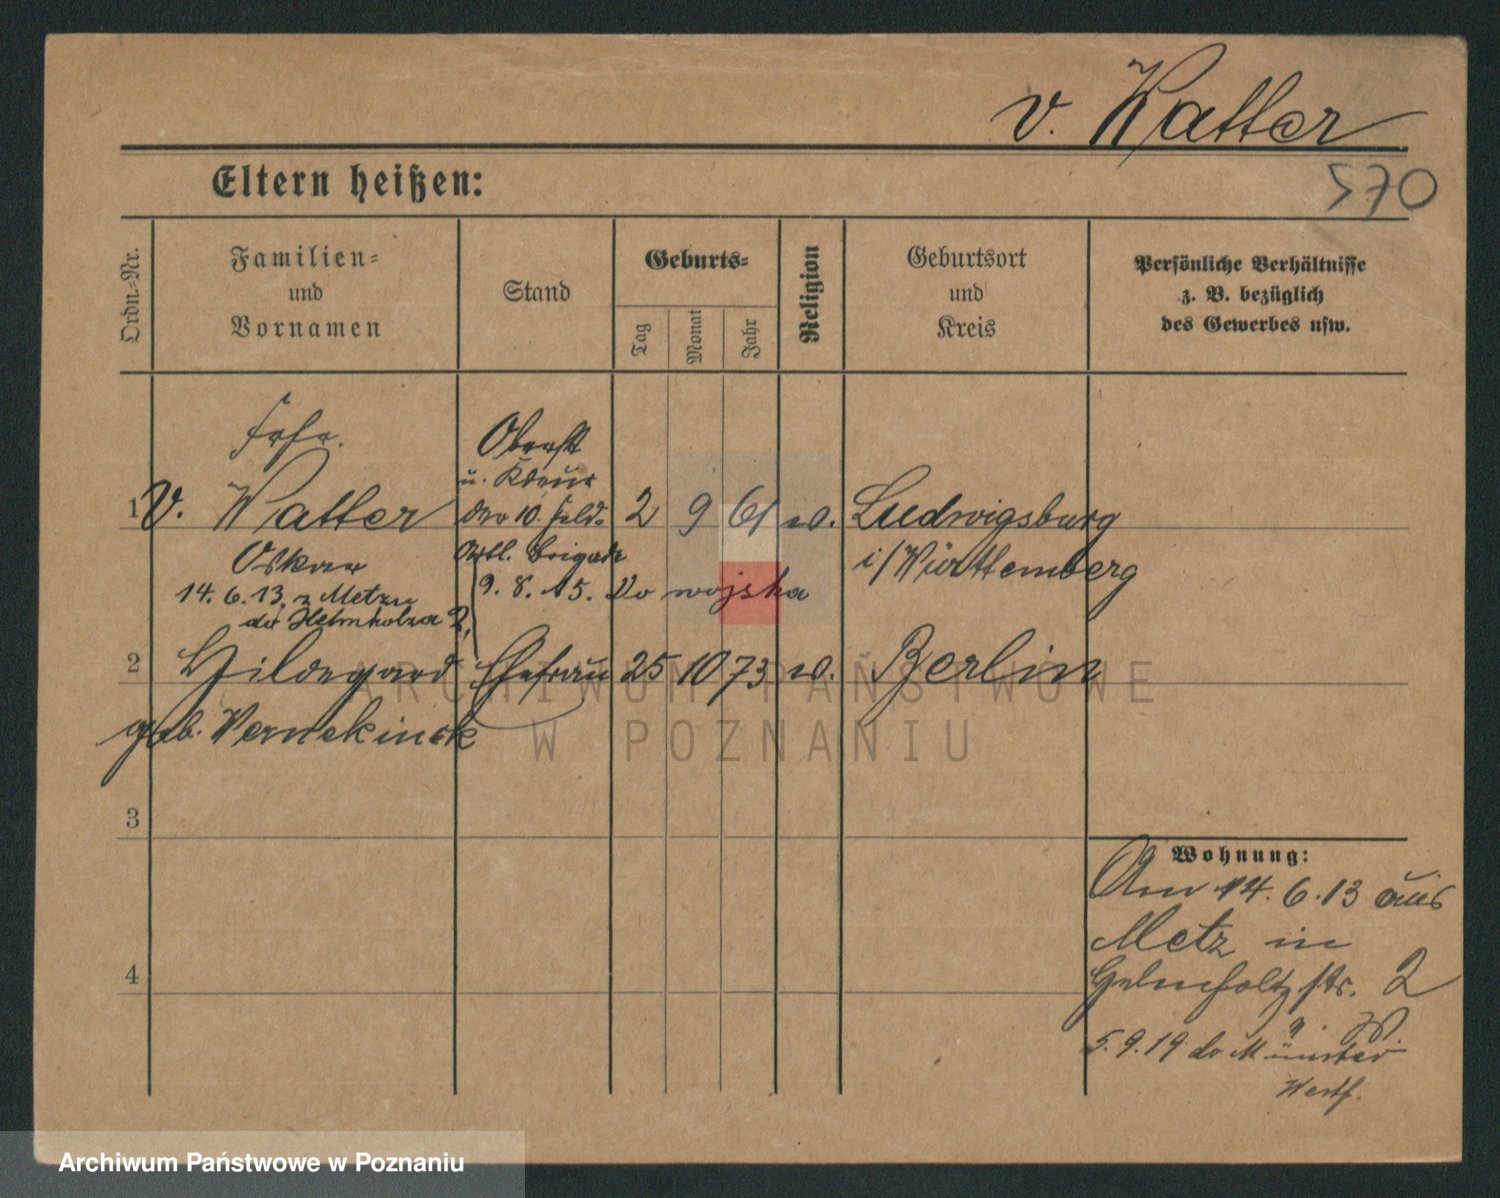 v. Watter
570
Eltern heißen:
Ordn.-Nr.
Familien-
und
Vornamen
Stand
Geburts-
Tag
Monat
Jahr
Religion
Geburtsort
und
Kreis
Persönliche Verhältnisse
z. B. bezüglich
des Gewerbes usw.
Frhr.
1 v. Watter
Oskar
14.6.13 z Metzu
do Helmholza 2
Oberst
u. Kdeur
der 10. Feld-
Artl. Brigade
9.8.15. Do wojska
2 9 61
Ludwigsburg
i/Württemberg
2 Hildegard Ehefrau 25 10 73 Berlin
geb. Wernekinck
3
4
Wohnung:
Am 14.6.13 aus
Metz in
Helmholtzstr. 2
5.9.19 do Münster
Westf.
ARCHIWUM PAŃSTWOWE
W POZNANIU
Archiwum Państwowe w Poznaniu